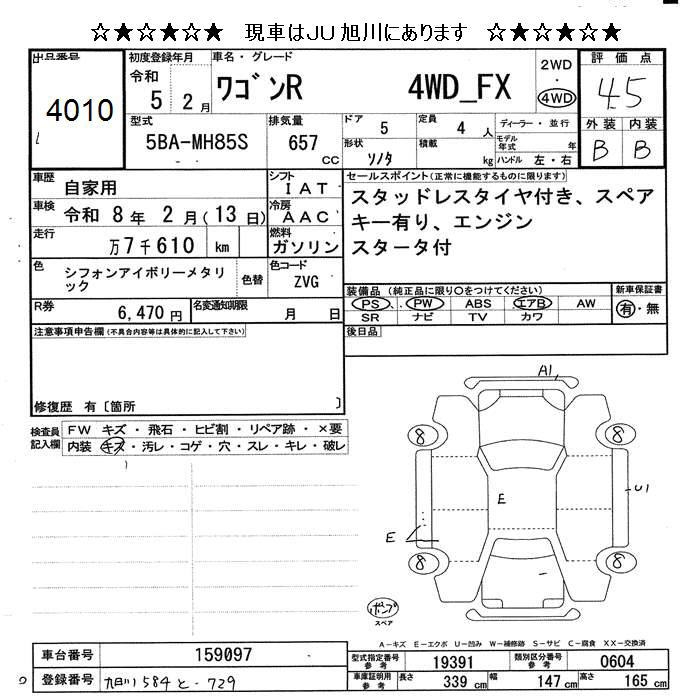 ☆★☆★☆★ 現車はJU旭川にあります ☆★☆★☆★
出品番号
4010
初度登録年月
令和
5 2月
車名・グレード
ワゴンR 4WD_FX
2WD
・
4WD
評価点
4.5
外装 内装
B B
型式
5BA-MH85S
- -
排気量
657
cc
ドア 5
定員 4 人
形状 ソノタ
積載 kg
ディーラー・並行
モデル年式 年
ハンドル 左・右
車歴 自家用
シフト IAT
車検 令和 8年 2月(13日)
冷房 AAC
走行 万7千610 km
燃料 ガソリン
色 シフォンアイボリーメタリック
色替
色コード ZVG
R券 6,470円
名変通知期限 月 日
セールスポイント(正常に機能するものに限ります)
スタッドレスタイヤ付き、スペア
キー有り、エンジン
スタータ付
装備品(純正品に限り○をつけてください)
PS PW ABS エアB AW
SR ナビ TV カワ
新車保証書
有・無
後日品
注意事項申告欄(不具合内容等は具体的に記入して下さい)
修復歴 有〔箇所 〕
検査員記入欄
FW キズ・飛石・ヒビ割・リペア跡・×要
内装 キズ・汚レ・コゲ・穴・スレ・キレ・破レ
A1
8 8
E
U1
E
8 8
ポンプ
スペア
A-キズ E-エクボ U-凹み W-補修跡 S-サビ C-腐食 XX-交換済
車台番号 159097
登録番号 旭川 584 と・729
型式指定番号参考 19391
類別区分番号参考 0604
車庫証明用参考 長さ 339cm 幅 147cm 高さ 165cm